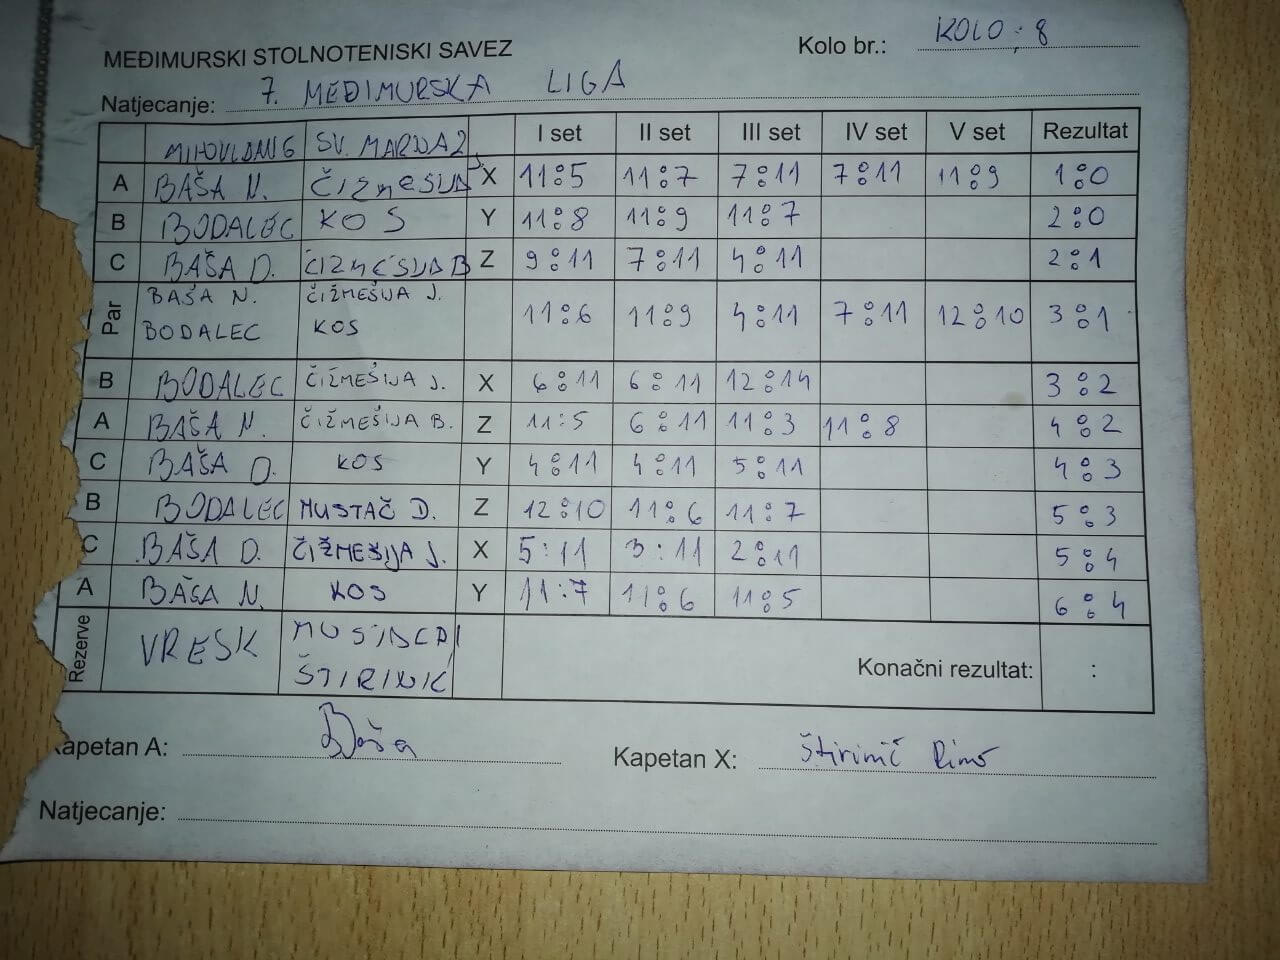 MEĐIMURSKI STOLNOTENISKI SAVEZ
Kolo br.: KOLO: 8
Natjecanje: 7. MEĐIMURSKA LIGA
SV. MARIJA 2 I set II set III set IV set V set Rezultat
A BAŠA N. ČIZMEŠIJA J X 11:5 11:7 7:11 7:11 11:9 1:0
B BODALEC KOS Y 11:8 11:9 11:7 2:0
C BAŠA D. ČIZMEŠIJA B Z 9:11 7:11 4:11 2:1
Par BAŠA N. ČIŽMEŠIJA J.
BODALEC KOS 11:6 11:9 4:11 7:11 12:10 3:1
B BODALEC ČIŽMEŠIJA J. X 6:11 6:11 12:14 3:2
A BAŠA N. ČIŽMEŠIJA B. Z 11:5 6:11 11:3 11:8 4:2
C BAŠA D. KOS Y 4:11 4:11 5:11 4:3
B BODALEC MUSTAČ D. Z 12:10 11:6 11:7 5:3
C BAŠA D. ČIŽMEŠIJA J. X 5:11 3:11 2:11 5:4
A BAŠA N. KOS Y 11:7 11:6 11:5 6:4
Rezerve VRESK
Konačni rezultat: :
Kapetan A: Baša
Kapetan X: Štirinić
Natjecanje: